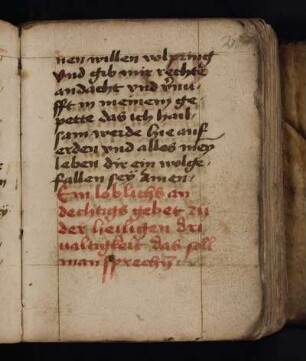 nen willen volpring
vnd gib mir rechte
andacht vnd v̄nu-
fft in meinem ge
pette das ich hail-
sam werde hie auf
erden vnd alles mey
leben dir ein wolge-
fallen sey Amen-
Ein loblichs an
dechtigs gebet zu
der heiligen dri
ualtigkeit das soll
man sprechn̄